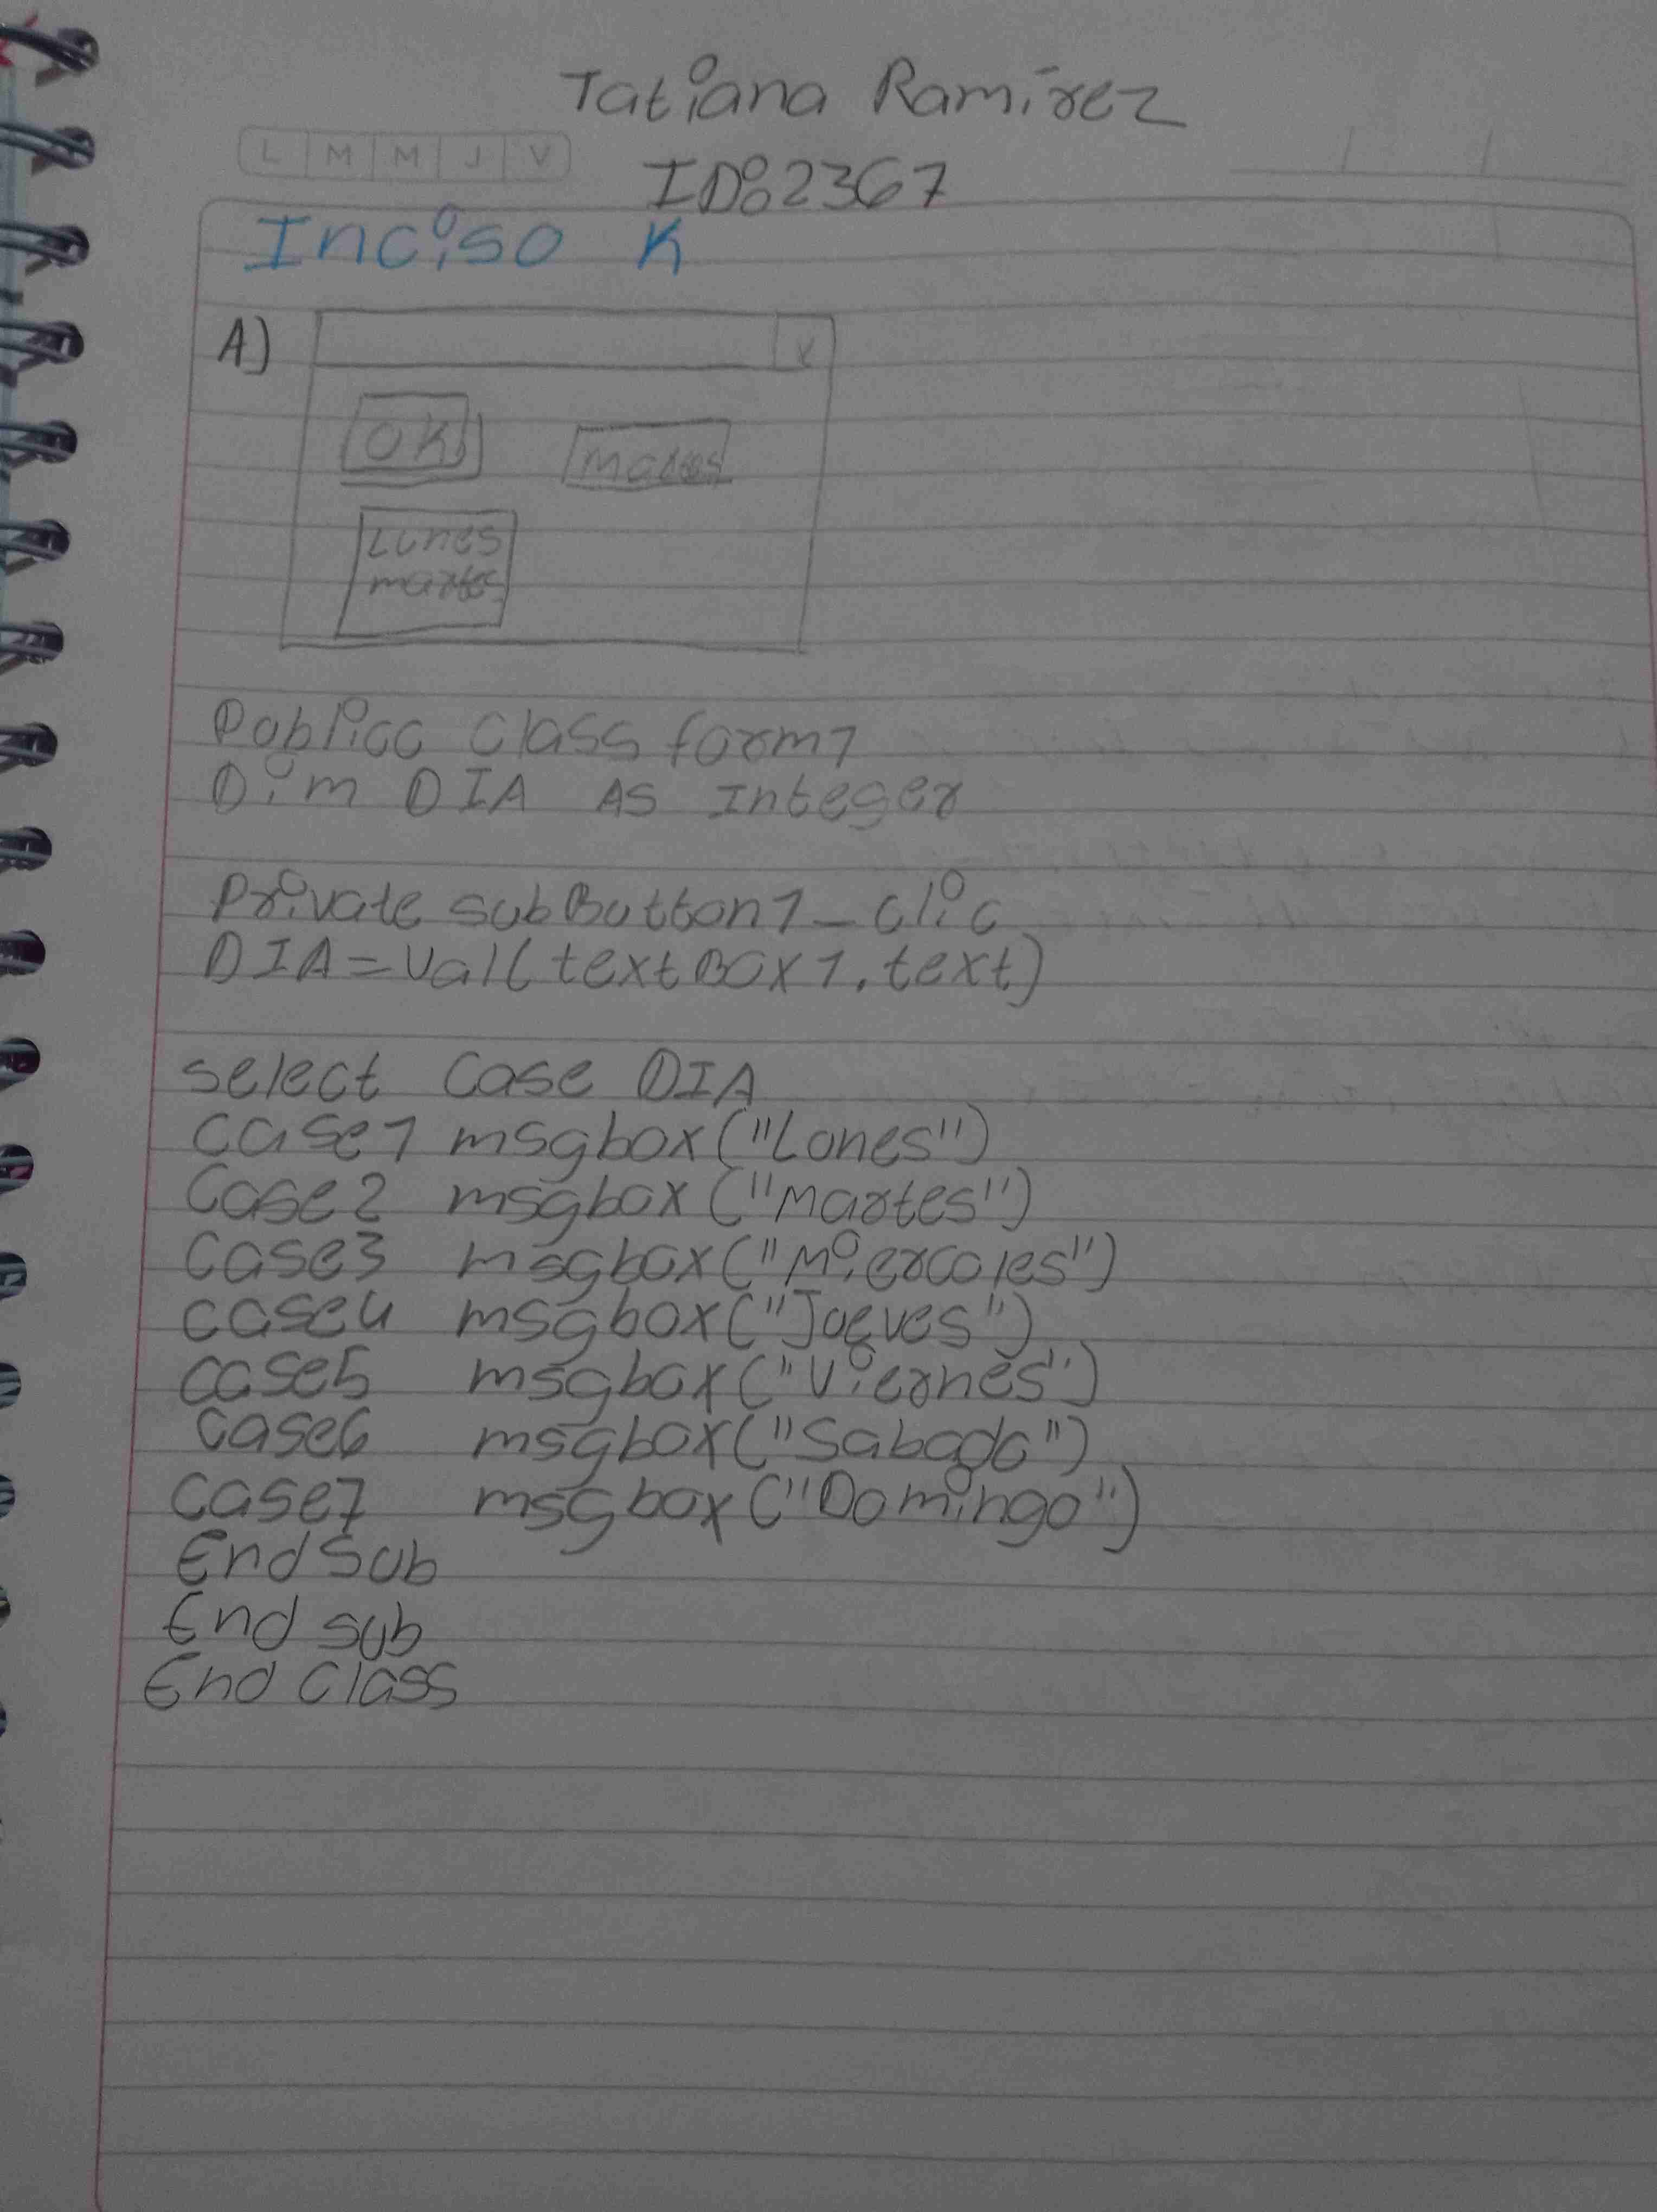 Tatiana Ramírez
L M M J V
ID:2367
Inciso K
A)
OK
martes
Lunes
martes
Poblicc class form1
Dim DIA As Integer
Private subButton1_clic
DIA=Val(textBox1.text)
select Case DIA
case1 msgbox("Lones")
Case2 msgbox("Martes")
Case3 msgbox("Miercoles")
case4 msgbox("Joeves")
case5 msgbox("Viernes")
case6 msgbox("Sabado")
case7 msgbox("Domingo")
End Sub
End sub
End Class